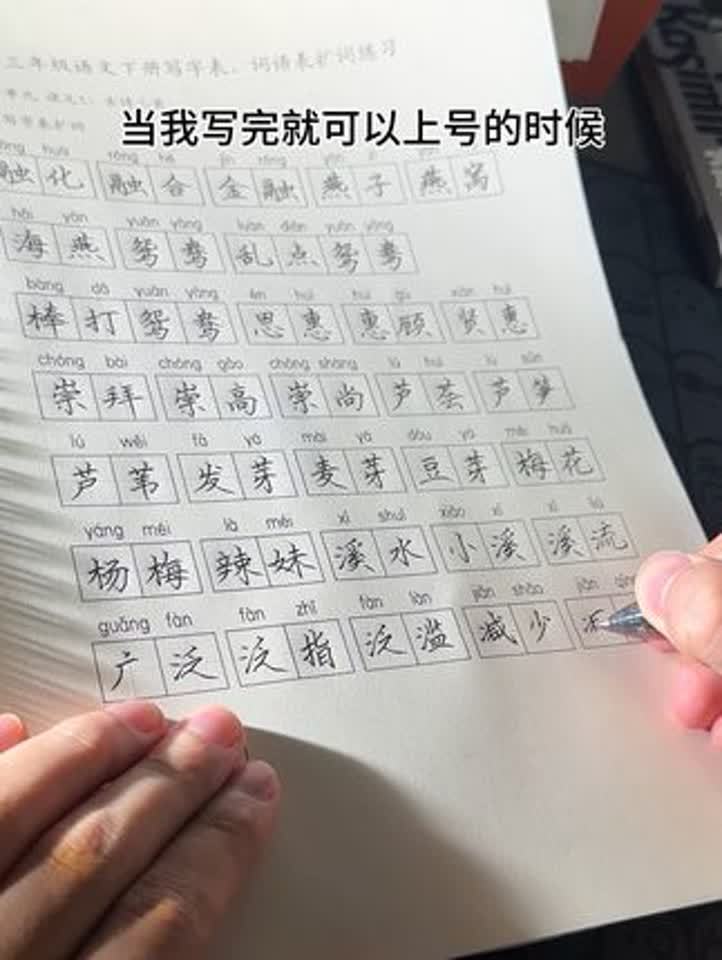 三年级语文下册写字表、词语表扩词练习
当我写完就可以上号的时候
融化 融合 金融 燕子 燕窝
hǎi yàn yuān yāng luàn diǎn yuān yāng
海燕 鸳鸯 乱点鸳鸯
bàng dǎ yuān yāng ēn huì huì gù xián huì
棒打鸳鸯 恩惠 惠顾 贤惠
chóng bài chóng gāo chóng shàng lú huì lú sǔn
崇拜 崇高 崇尚 芦荟 芦笋
lú wěi fā yá mài yá dòu yá méi huā
芦苇 发芽 麦芽 豆芽 梅花
yáng méi là mèi xī shuǐ xiǎo xī xī liú
杨梅 辣妹 溪水 小溪 溪流
guǎng fàn fàn zhǐ fàn làn jiǎn shǎo jiǎn qīng
广泛 泛指 泛滥 减少